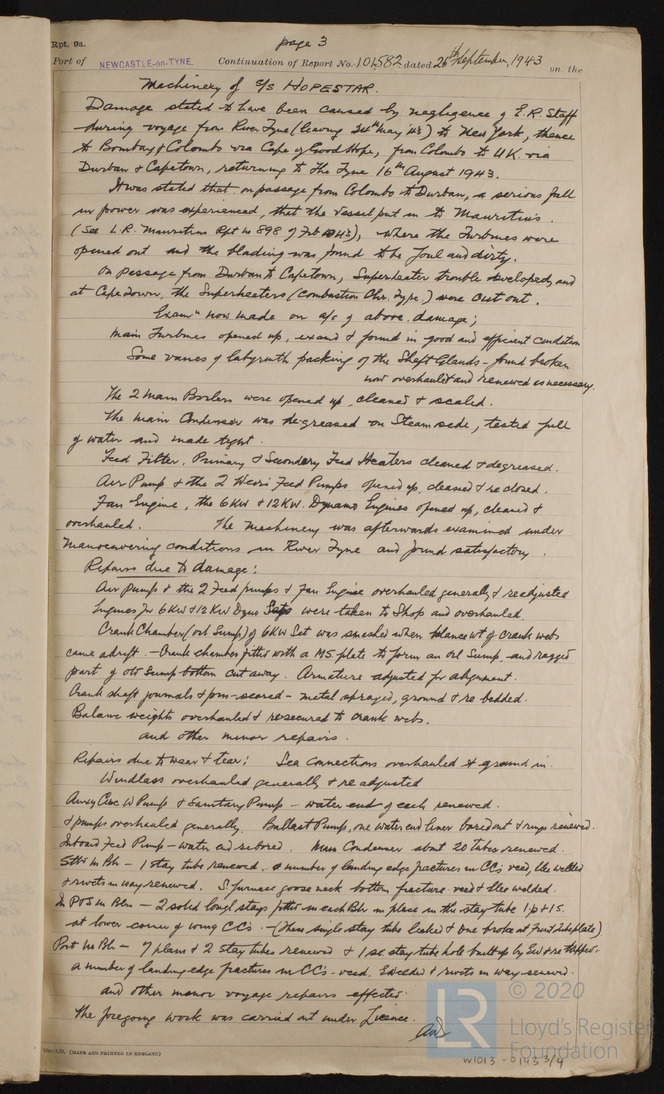 Rpt. 9a.
page 3
Port of NEWCASTLE-on-TYNE. Continuation of Report No. 101582 dated 26th September, 1943 on the
Machinery of S/S HOPESTAR.
Damage stated to have been caused by negligence of E.R. Staff
during voyage from River Tyne (leaving May '43) to New York, thence
to Bombay & Colombo via Cape of Good Hope, from Colombo to U.K. via
Durban & Capetown, returning to the Tyne 16th August 1943.
It was stated that on passage from Colombo to Durban, a serious fall
in power was experienced, that the vessel put in to Mauritius.
(See L.R. Mauritius Rpt No 898 of Feb 1943), where the Turbines were
opened out and the blading was found to be foul and dirty.
On passage from Durban to Capetown, Superheater trouble developed, and
at Cape Town, the Superheaters (Combustion Chr. Type) were cut out.
Exam now made on a/c of above damage;
Main Turbines opened up, examd & found in good and efficient condition
Some vanes of labyrinth packing of the Shaft Glands - found broken
now overhauled and renewed as necessary.
The 2 Main Boilers were opened up, cleaned & scaled.
The main Condenser was degreased on Steam side, tested full
of water and made tight.
Feed Filter, Primary & Secondary Feed Heaters cleaned & degreased.
Air Pump & the 2 Weirs Feed Pumps opened up, cleaned & reclosed.
Fan Engine, the 6KW & 12KW. Dynamo Engines opened up, cleaned &
overhauled. The Machinery was afterwards examined under
manoeuvering conditions in River Tyne and found satisfactory.
Repairs due to damage:
Air pumps & the 2 Feed pumps & Fan Engine overhauled generally & readjusted
Engines for 6KW & 12KW Dyno Sets were taken to Shop and overhauled.
Crank Chamber (oil Sump) of 6KW Set was smashed when balance wt of crank webs
came adrift. - Crank chamber fitted with a MS plate to form an oil sump, and ragged
part of old Sump bottom cut away. Armature adjusted for alignment.
Crank shaft journals & pin - scored - metal sprayed, ground & re bedded.
Balance weights overhauled & resecured to crank webs.
and other minor repairs.
Repairs due to wear & tear: Sea Connections overhauled & ground in.
Windlass overhauled generally & readjusted
Auxy Circ W Pump & Sanitary Pump - water end of each renewed.
& pumps overhauled generally. Ballast Pump, one water end liner bored out & rings renewed.
Inboard Feed Pump - water end rebored. Main Condenser about 20 tubes renewed.
Stbd m Blr - 1 stay tube renewed, a number of landing edge fractures in CCs veed, elec welded
& rivets in way renewed. S. furnace goose neck bottom fracture veed & elec welded.
In P & S m Blrs - 2 solid longl stays fitted in each Blr in place in the stay tube 1p & 1s.
at lower corner of wing CCs. - (These single stay tubes leaked & one broke at front tubeplate)
Port m Blr - 7 plain & 2 stay tubes renewed & 1 stay tube hole built up by EW & retapped.
a number of landing edge fractures in CCs - veed. EWelded & rivets in way renewed.
and other minor voyage repairs effected.
The foregoing work was carried out under Licence.
[MADE AND PRINTED IN ENGLAND]
W1013 - 0193 3/4
© 2020
LR
Lloyd's Register
Foundation